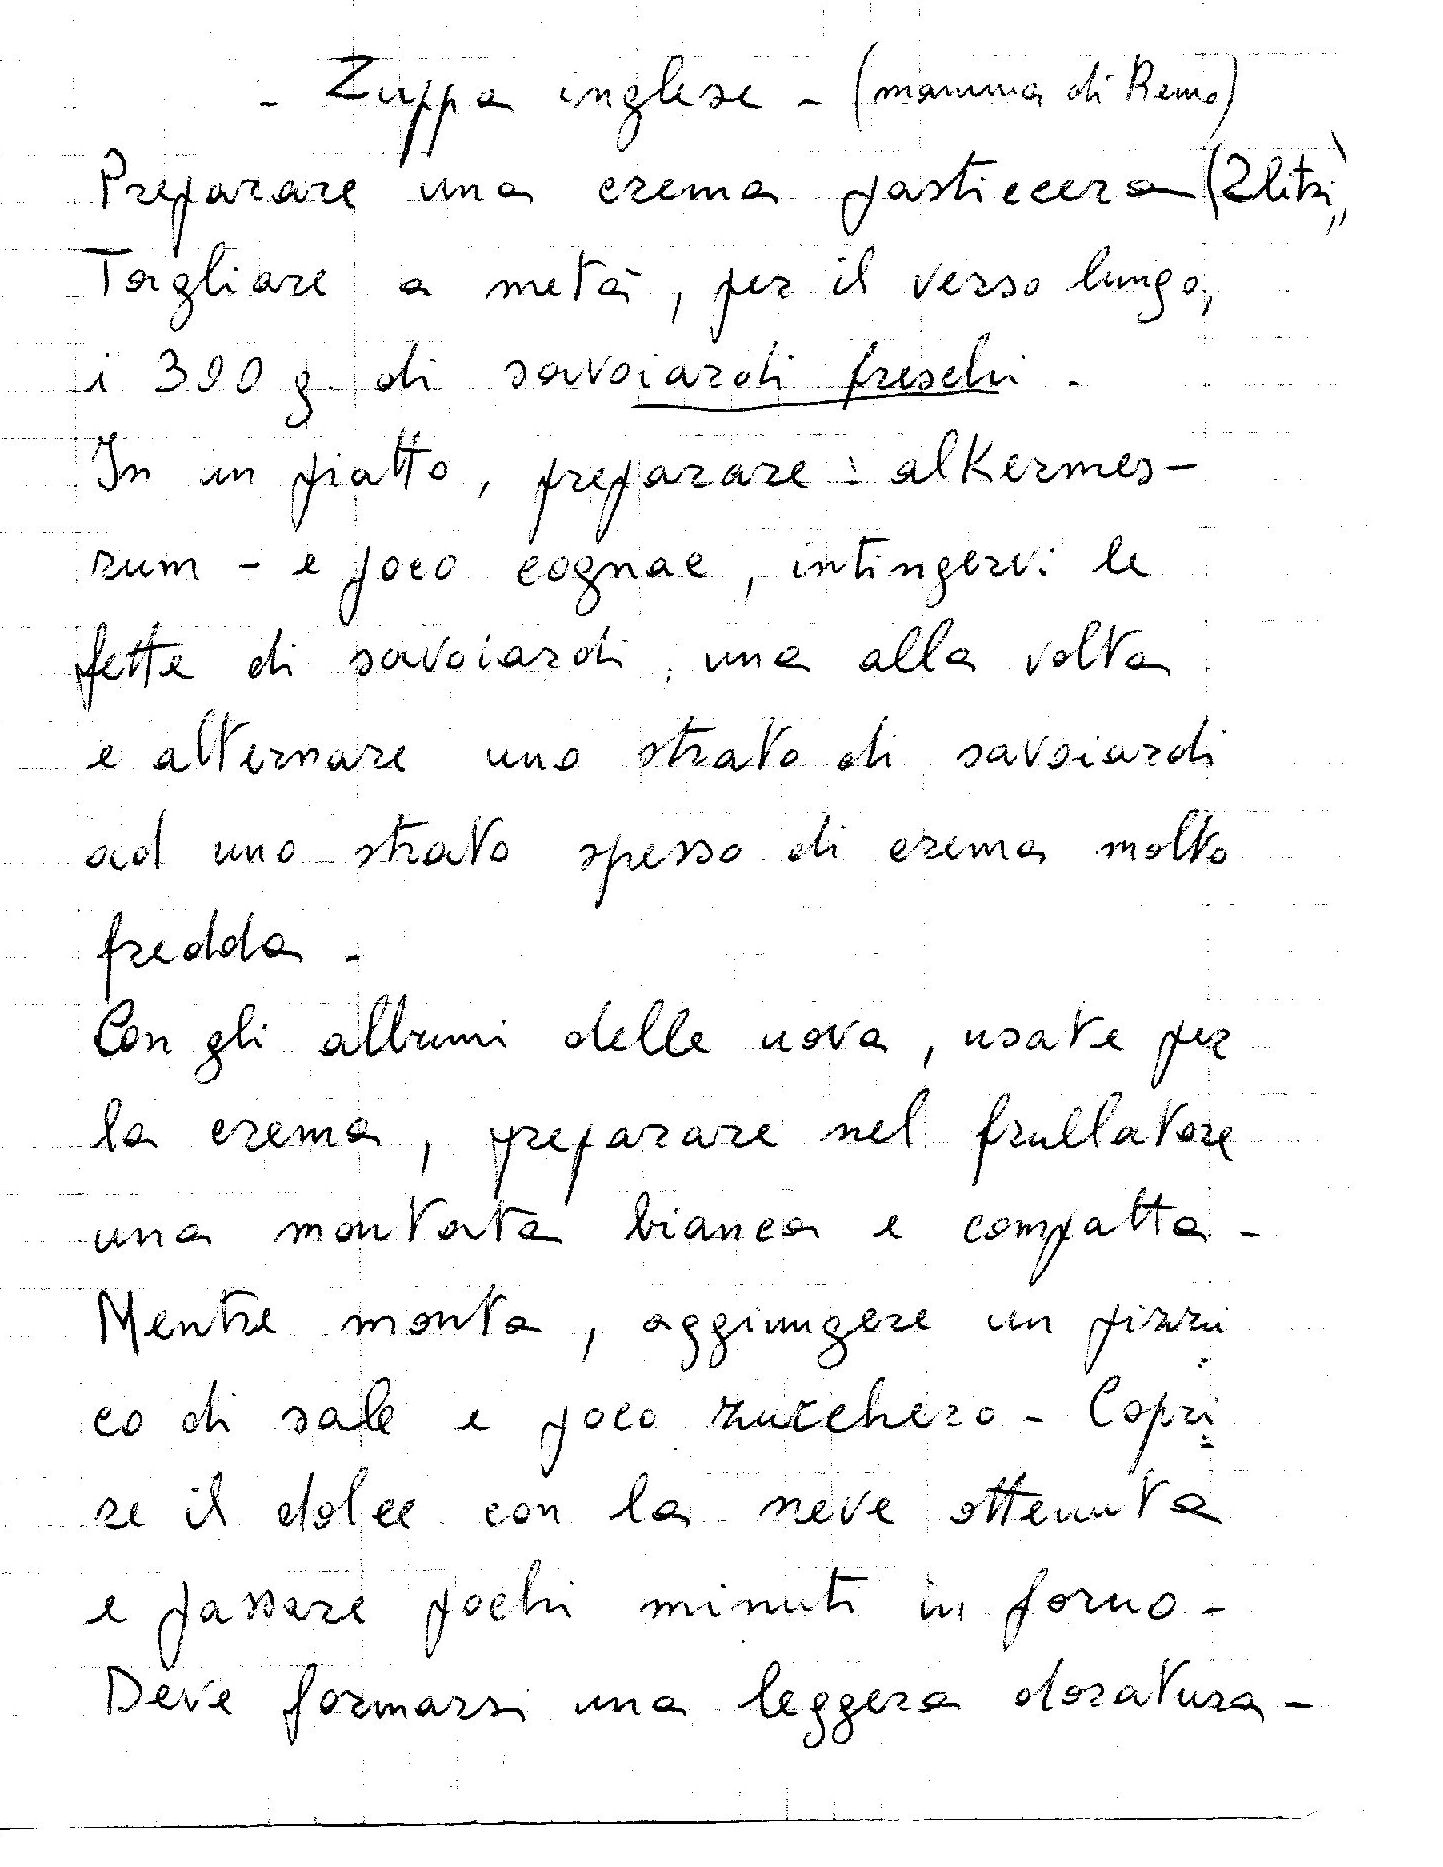 - Zuppa inglese - (mamma di Remo)
Preparare una crema pasticcera (2 litri),
Tagliare a metà, per il verso lungo,
i 300 g di savoiardi freschi.
In un piatto, preparare: alKermes -
rum - e poco cognac, intingervi le
fette di savoiardi, una alla volta
e alternare uno strato di savoiardi
ad uno strato spesso di crema molto
fredda -
Con gli albumi delle uova, usate per
la crema, preparare nel frullatore
una montata bianca e compatta -
Mentre monta, aggiungere un pizzi
co di sale e poco zucchero - Copri=
re il dolce con la neve ottenuta
e passare pochi minuti in forno -
Deve formarsi una leggera doratura -